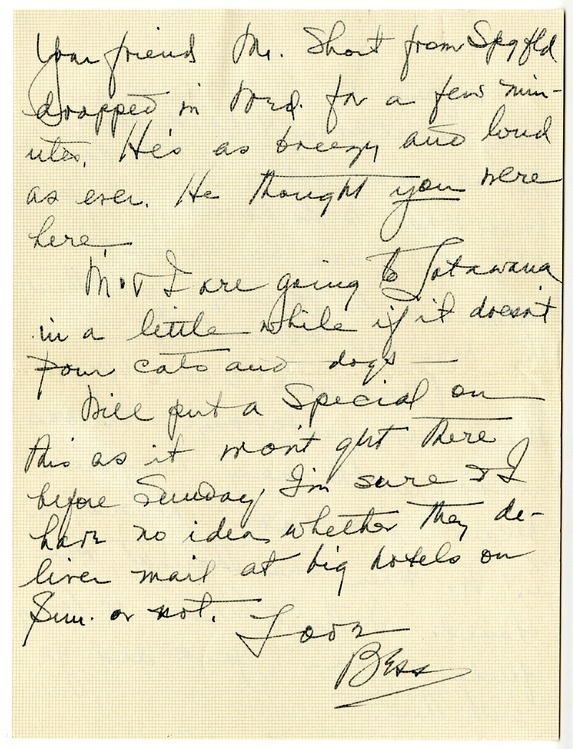 Your friend Mr. Short from Spgfld.
dropped in Wed. for a few min-
utes. He's as breezy and loud
as ever. He thought you were
here
M. & I are going to Lotawana
in a little while if it doesn't
pour cats and dogs —
Will put a Special on
this as it won't get there
before Sunday, I'm sure & I
have no idea whether they de-
liver mail at big hotels on
Sun. or not.
Love
Bess